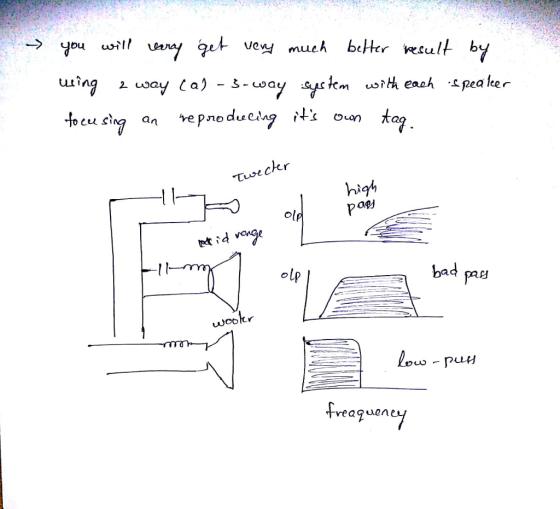 → you will very get very much better result by
using 2 way (a) - 3-way system with each speaker
focusing an reproducing it's own tag.
Tweeter
high
pass
o/p
mid range
o/p
bad pass
woofer
low-pass
freaquency